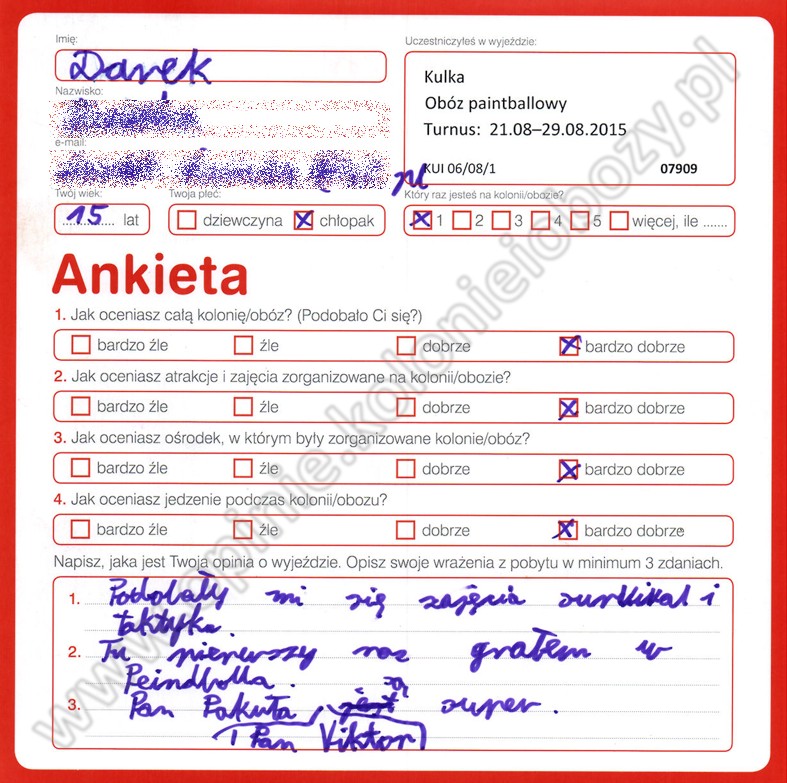 Imię:
Darek
Nazwisko:
e-mail:
Twój wiek:
15 lat
Twoja płeć:
dziewczyna chłopak
Uczestniczyłeś w wyjeździe:
Kulka
Obóz paintballowy
Turnus: 21.08–29.08.2015
KUI 06/08/1 07909
Który raz jesteś na kolonii/obozie?
1 2 3 4 5 więcej, ile .......
Ankieta
1. Jak oceniasz całą kolonię/obóz? (Podobało Ci się?)
bardzo źle źle dobrze bardzo dobrze
2. Jak oceniasz atrakcje i zajęcia zorganizowane na kolonii/obozie?
bardzo źle źle dobrze bardzo dobrze
3. Jak oceniasz ośrodek, w którym były zorganizowane kolonie/obóz?
bardzo źle źle dobrze bardzo dobrze
4. Jak oceniasz jedzenie podczas kolonii/obozu?
bardzo źle źle dobrze bardzo dobrze
Napisz, jaka jest Twoja opinia o wyjeździe. Opisz swoje wrażenia z pobytu w minimum 3 zdaniach.
1. Podobały mi się zajęcia surwikal i
taktyka.
2. Tu pierwszy raz grałem w
Peindbolla.
3. Pan Pakuła są super.
i Pan Viktor
www.opinie.kolonieiobozy.pl